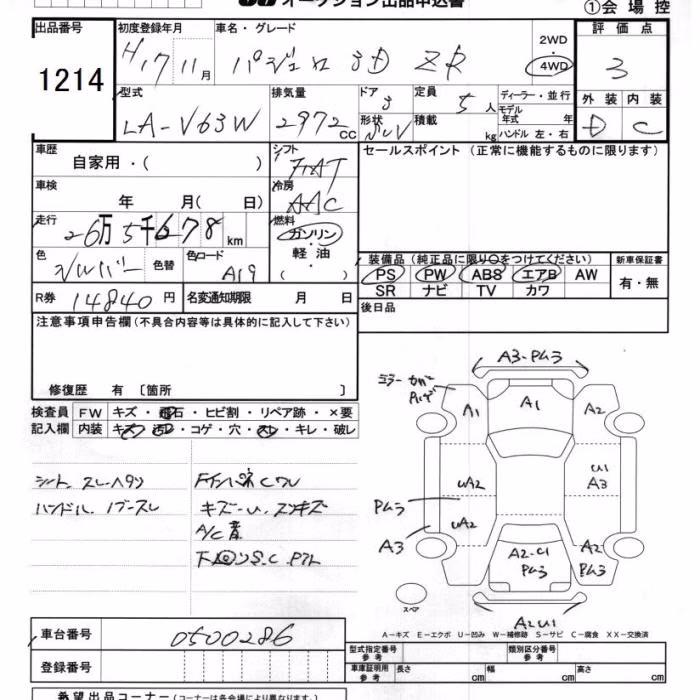 オークション出品申込書
①会場控
出品番号
1214
初度登録年月
H17 11月
車名・グレード
パジェロ 3D ZR
2WD
・
4WD
評価点
3
型式
LA-V63W
排気量
2972cc
ドア
3
形状
定員
5人
積載
kg
ディーラー・並行
モデル
年式 年
ハンドル 左・右
外装 内装
D C
車歴
自家用・( )
シフト
FAT
セールスポイント (正常に機能するものに限ります)
車検
年 月( 日)
冷房
AAC
走行
26万5千678km
燃料
ガソリン
・
軽油
・
( )
色
シルバー
色替
色コード
A19
装備品(純正品に限り○をつけてください)
PS PW ABS エアB AW
SR ナビ TV カワ
新車保証書
有・無
R券 14840円
名変通知期限 月 日
後日品
注意事項申告欄(不具合内容等は具体的に記入して下さい)
修復歴 有 〔箇所 〕
検査員
記入欄
FW キズ・飛石・ヒビ割・リペア跡・×要
内装 キズ・汚レ・コゲ・穴・スレ・キレ・破レ
シート スレ・ヘタリ
ハンドル
キズ・U.
A/C
A3-Pムラ
ミラー
A1
A1
A2
UA2
U1
A3
Pムラ
UA2
A3
A2-C1
Pムラ
A2
Pムラ
スペア
A2U1
A−キズ E−エクボ U−凹み W−補修跡 S−サビ C−腐食 XX−交換済
車台番号
0500286
登録番号
型式指定番号
参考
類別区分番号
参考
車庫証明用
参考
長さ cm
幅 cm
高さ cm
希望出品コーナー(コーナーは各会場により異なります。)